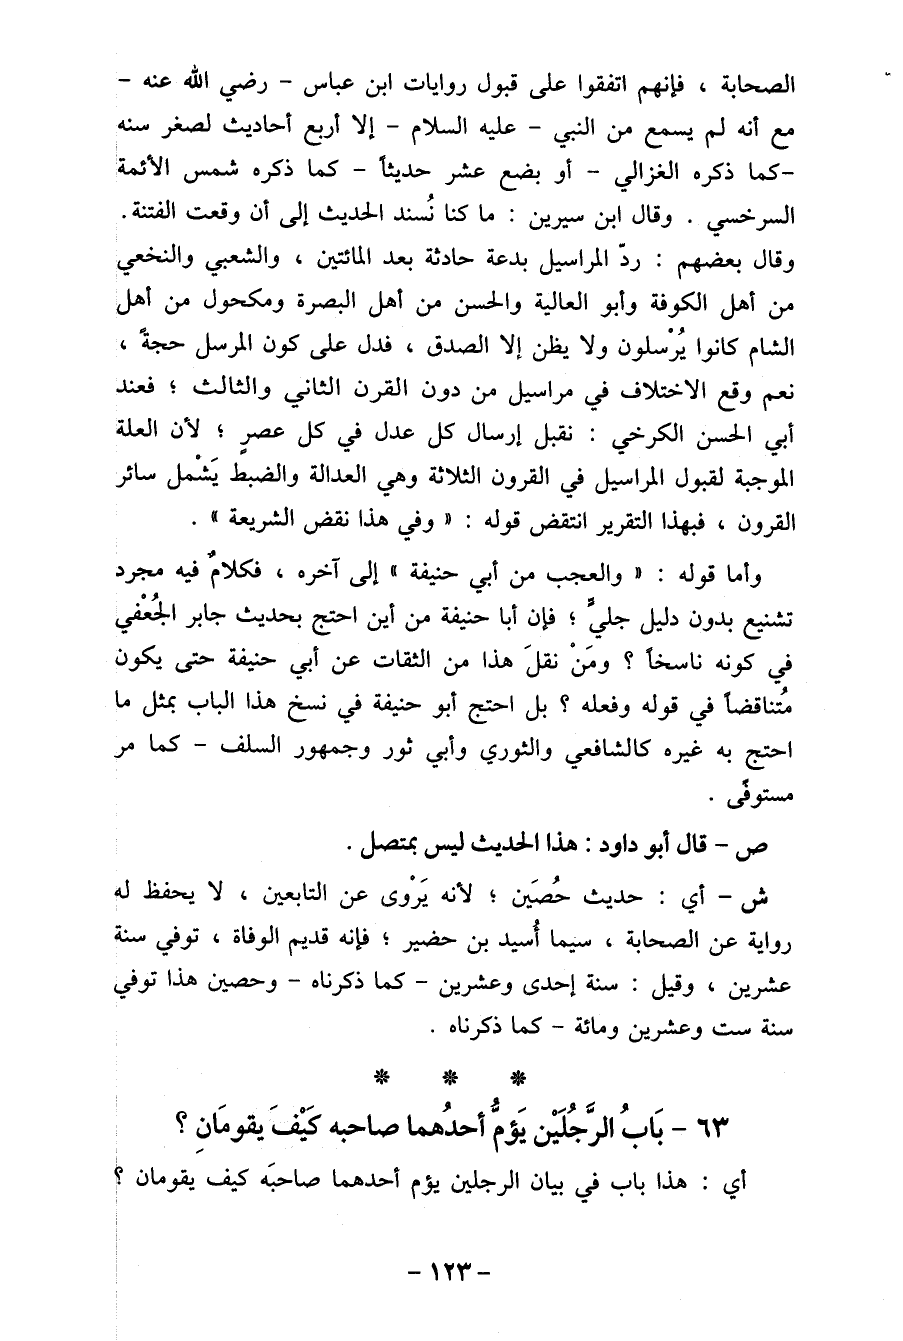 الصحابة ، فإنهم اتفقوا على قبول روايات ابن عباس - رضي الله عنه -
مع أنه لم يسمع من النبي - عليه السلام - إلا أربع أحاديث لصغر سنه
-كما ذكره الغزالي - أو بضع عشر حديثاً - كما ذكره شمس الأئمة
السرخسي . وقال ابن سيرين : ما كنا نُسند الحديث إلى أن وقعت الفتنة.
وقال بعضهم : ردّ المراسيل بدعة حادثة بعد المائتين ، والشعبي والنخعي
من أهل الكوفة وأبو العالية والحسن من أهل البصرة ومكحول من أهل
الشام كانوا يُرْسلون ولا يظن إلا الصدق ، فدل على كون المرسل حجةً ،
نعم وقع الاختلاف في مراسيل من دون القرن الثاني والثالث ؛ فعند
أبي الحسن الكرخي : نقبل إرسال كل عدل في كل عصرٍ ؛ لأن العلة
الموجبة لقبول المراسيل في القرون الثلاثة وهي العدالة والضبط يَشْمل سائر
القرون ، فبهذا التقرير انتقض قوله : « وفي هذا نقض الشريعة » .
وأما قوله : « والعجب من أبي حنيفة » إلى آخره ، فكلامٌ فيه مجرد
تشنيع بدون دليل جليٍّ ؛ فإن أبا حنيفة من أين احتج بحديث جابر الجُعْفي
في كونه ناسخاً ؟ ومَنْ نقلَ هذا من الثقات عن أبي حنيفة حتى يكون
مُتناقضاً في قوله وفعله ؟ بل احتج أبو حنيفة في نسخ هذا الباب بمثل ما
احتج به غيره كالشافعي والثوري وأبي ثور وجمهور السلف - كما مر
مستوفًى .
ص - قال أبو داود : هذا الحديث ليس بمتصل .
ش - أي : حديث حُصَين ؛ لأنه يَرْوى عن التابعين ، لا يحفظ له
رواية عن الصحابة ، سيما أُسيد بن حضير ؛ فإنه قديم الوفاة ، توفي سنة
عشرين ، وقيل : سنة إحدى وعشرين - كما ذكرناه - وحصين هذا توفي
سنة ست وعشرين ومائة - كما ذكرناه .
* * *
٦٣ - بَابُ الرَّجُلَيْن يَؤمُّ أحدُهما صاحبه كَيْفَ يقومَانِ ؟
أي : هذا باب في بيان الرجلين يؤم أحدهما صاحبَه كيف يقومان ؟
- ١٢٣ -